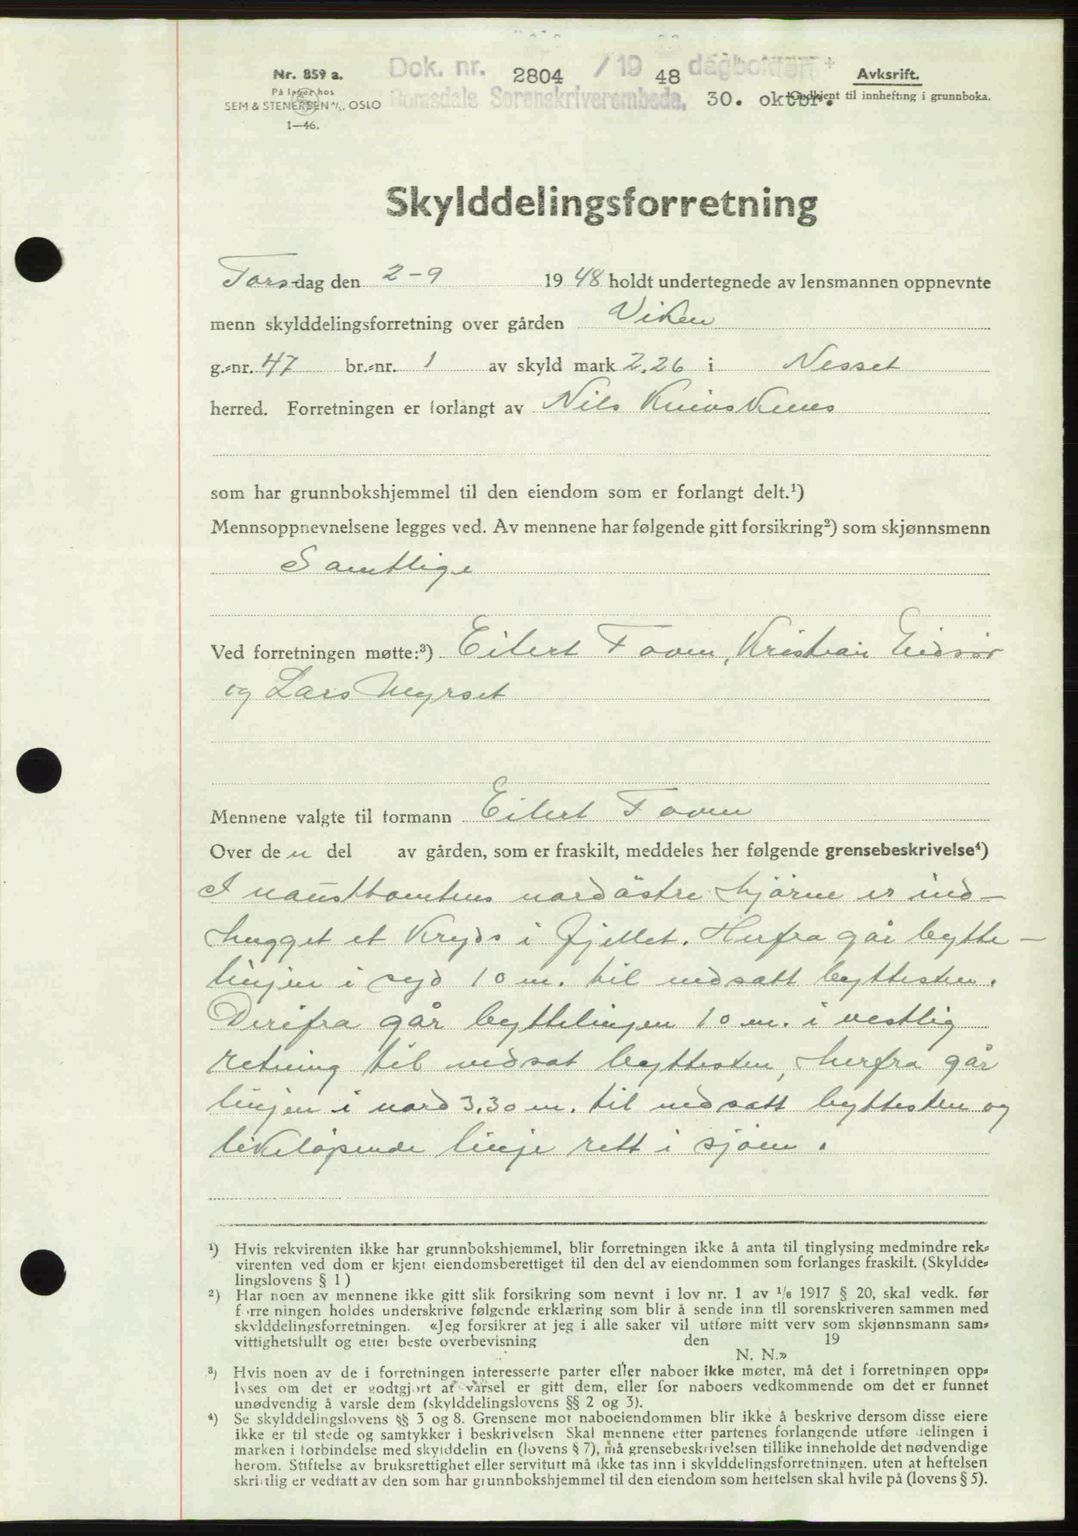 Nr. 859 a.
På lager hos
SEM & STENERSEN A/S, OSLO
1—46.
Dok. nr. 2804 / 19 48 dagboken
Romsdals Sorenskriverembede, 30. oktbr.
Avkskrift.
Godkjent til innhefting i grunnboka.
Skylddelingsforretning
Torsdag den 2-9 1948 holdt undertegnede av lensmannen oppnevnte
menn skylddelingsforretning over gården Viken
g.-nr. 47 br.-nr. 1 av skyld mark 2.26 i Nesset
herred. Forretningen er forlangt av Nils
som har grunnbokshjemmel til den eiendom som er forlangt delt.¹)
Mennsoppnevnelsene legges ved. Av mennene har følgende gitt forsikring²) som skjønnsmenn
Samtlige
Ved forretningen møtte:³) Eilert Toven, Kristian Eidsør
og Lars Myrset
Mennene valgte til formann Eilert Toven
Over den del av gården, som er fraskilt, meddeles her følgende grensebeskrivelse⁴)
I nausttomtens nordöstre hjörne er ind-
hugget et kryds i fjellet. Herfra går bytte-
linjen i syd 10 m. til nedsatt byttesten.
Derifra går byttelinjen 10 m. i vestlig
retning til nedsat byttesten, herfra går
linjen i nord 3.30 m. til nedsatt byttesten og
likelöpende linje rett i sjöen.
¹) Hvis rekvirenten ikke har grunnbokshjemmel, blir forretningen ikke å anta til tinglysing medmindre rek-
virenten ved dom er kjent eiendomsberettiget til den del av eiendommen som forlanges fraskilt. (Skyldde-
lingslovens § 1)
²) Har noen av mennene ikke gitt slik forsikring som nevnt i lov nr. 1 av 1/6 1917 § 20, skal vedk. før
forretningen holdes underskrive følgende erklæring som blir å sende inn til sorenskriveren sammen med
skylddelingsforretningen. «Jeg forsikrer at jeg i alle saker vil utføre mitt verv som skjønnsmann sam-
vittighetsfullt og etter beste overbevisning den 19
N. N.»
³) Hvis noen av de i forretningen interesserte parter eller naboer ikke møter, må det i forretningen opp-
lyses om det er godtgjort at varsel er gitt dem, eller for naboers vedkommende om det er funnet
unødvendig å varsle dem (skylddelingslovens §§ 2 og 3).
⁴) Se skylddelingslovens §§ 3 og 8. Grensene mot naboeiendommen blir ikke å beskrive dersom disse eiere
ikke er til stede og samtykker i beskrivelsen Skal mennene etter partenes forlangende utføre delingen i
marken i forbindelse med skylddelingen (lovens § 7), må grensebeskrivelsen tillike inneholde det nødvendige
herom. Stiftelse av bruksrettighet eller servitutt må ikke tas inn i skylddelingsforretningen, uten at heftelsen
skriftlig er vedtatt av den som har grunnbokshjemmel til den eiendom som heftelsen skal hvile på (lovens § 5).